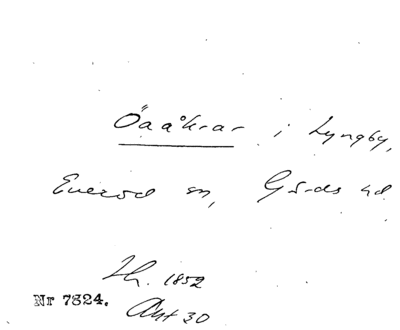 Öaåkrar i Lyngby,
Everöd sn, Gärds hd
Sk. 1852
Nr 7824.
Akt 30